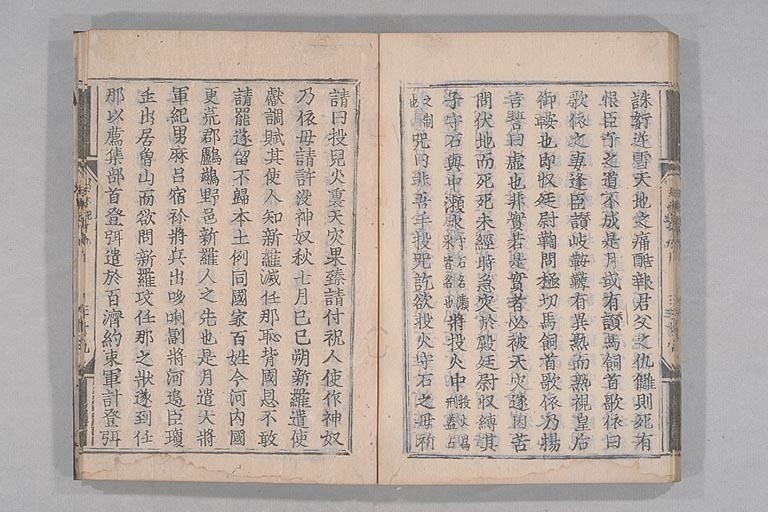 誅姧逆雪天地之痛酷報君父之仇讎則死有
恨臣子之道不成是月或有讒馬飼首歌依曰
歌依之妻逢臣讃岐鞍韉有異熟而熟視皇后
御鞍也即収廷尉鞫問極切馬飼首歌依乃揚
言誓曰虚也非實若是實者必被天災遂因苦
問伏地而死死未經時急災於殿廷尉収縛其
子守石與中瀬氷守石名瀬氷皆名也將投火中投火為刑盖古
之制也呪曰非吾手投呪訖欲投火守石之母祈
請曰投兒火裏天災果臻請付祝人使作神奴
乃依母請許沒神奴秋七月己巳朔新羅遣使
獻調賦其使人知新羅滅任那恥背國恩不敢
請罷遂留不歸本土例同國家百姓今河内國
更荒郡鸕鷀野邑新羅人之先也是月遣大將
軍紀男麻呂宿祢將兵出哆唎副將河邊臣瓊
缶出居曾山而欲問新羅攻任那之狀遂到任
那以薦集部首登弭遣於百濟約束軍計登弭